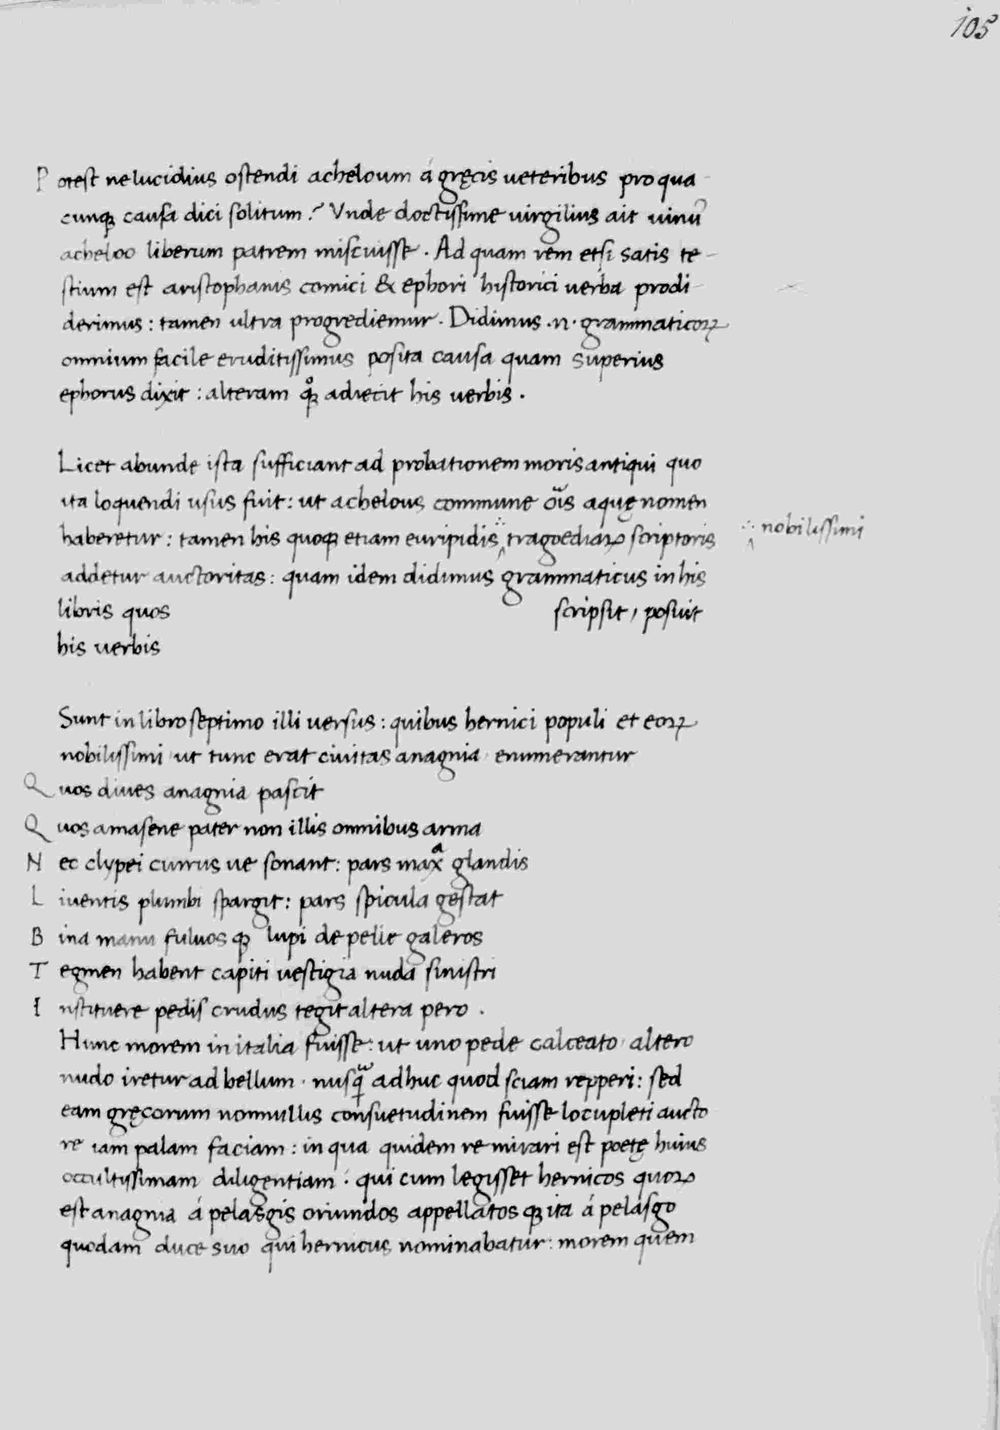 105
Potest ne lucidius ostendi acheloum á gręcis veteribus pro qua
cunqꝫ causa dici solitum? Vnde doctissime virgilius ait uinũ
acheloo liberum patrem miscuisse. Ad quam rem etsi satis te
stium est aristophanis comici & ephori historici verba prodi
derimus: tamen ultra progrediemur. Didimus .n. grammaticoꝝ
omnium facile eruditissimus posita causa quam superius
ephorus dixit: alteram qͦꝫ adiecit his verbis.
Licet abunde ista sufficiant ad probationem moris antiqui quo
ita loquendi usus fuit: ut achelous commune oĩs aquę nomen
haberetur: tamen his quoqꝫ etiam euripidis tragoediaꝝ scriptoris
nobilissimi
addetur auctoritas: quam idem didimus grammaticus in his
libris quos scripsit, posuit
his verbis
Sunt in libro septimo illi versus: quibus hernici populi et eoꝝ
nobilissimi ut tunc erat civitas anagnia enumerantur
Quos diues anagnia pascit
Quos amasene pater non illis omnibus arma
Nec clypei currus ve sonant: pars maxᵃ glandis
Liuentis plumbi spargit: pars spicula gestat
Bina manu fuluos qꝫ lupi de pelle galeros
Tegmen habent capiti vestigia nuda sinistri
Instituere pedis crudus tegit altera pero.
Hunc morem in italia fuisse: ut uno pede calceato altero
nudo iretur ad bellum nusq̃ adhuc quod sciam repperi: sed
eam gręcorum nonnullis consuetudinem fuisse locupleti aucto
re iam palam faciam: in qua quidem re mirari est poetę huius
occultissimam diligentiam: qui cum legisset hernicos quoꝝ
est anagnia á pelasgis oriundos appellatos qꝫ ita á pelasgo
quodam duce suo qui hernicus nominabatur: morem quem